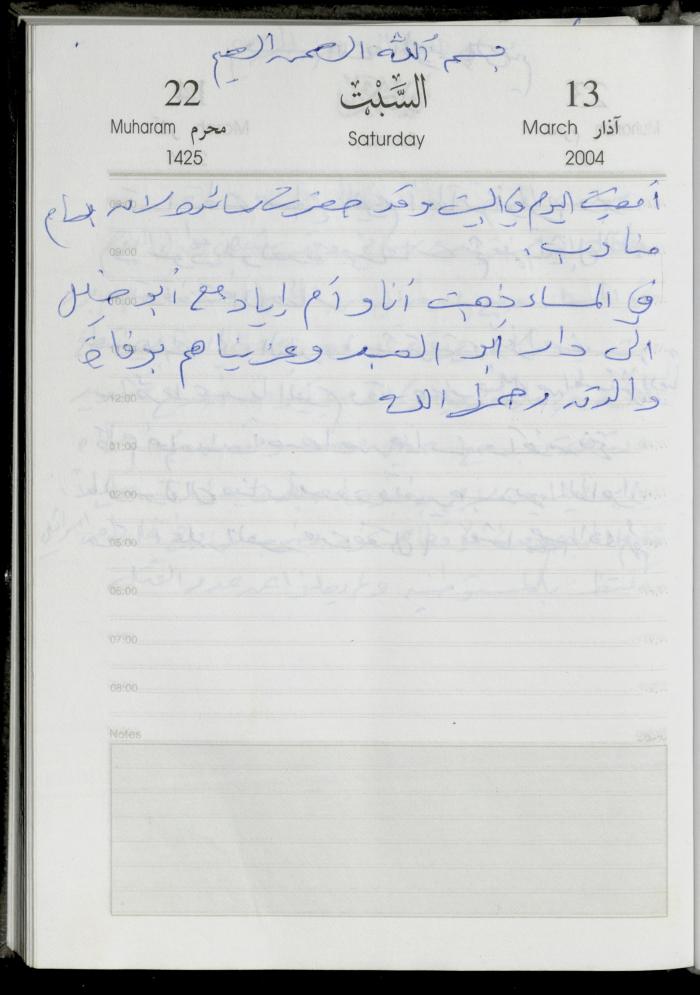 بسم الله الرحمن الرحيم
22 السَّبْت 13
Muharam محرم Saturday March آذار
1425 2004
أمضيت اليوم في البيت وقد حضرت سائدة لأن عصام
مناوب.
09:00
في المساء ذهبت أنا وأم إياد مع أبو خليل
الى دار أبو العبد وعزيناهم بوفاة
والدته رحمها الله
12:00
01:00
02:00
05:00
06:00
07:00
08:00
Notes